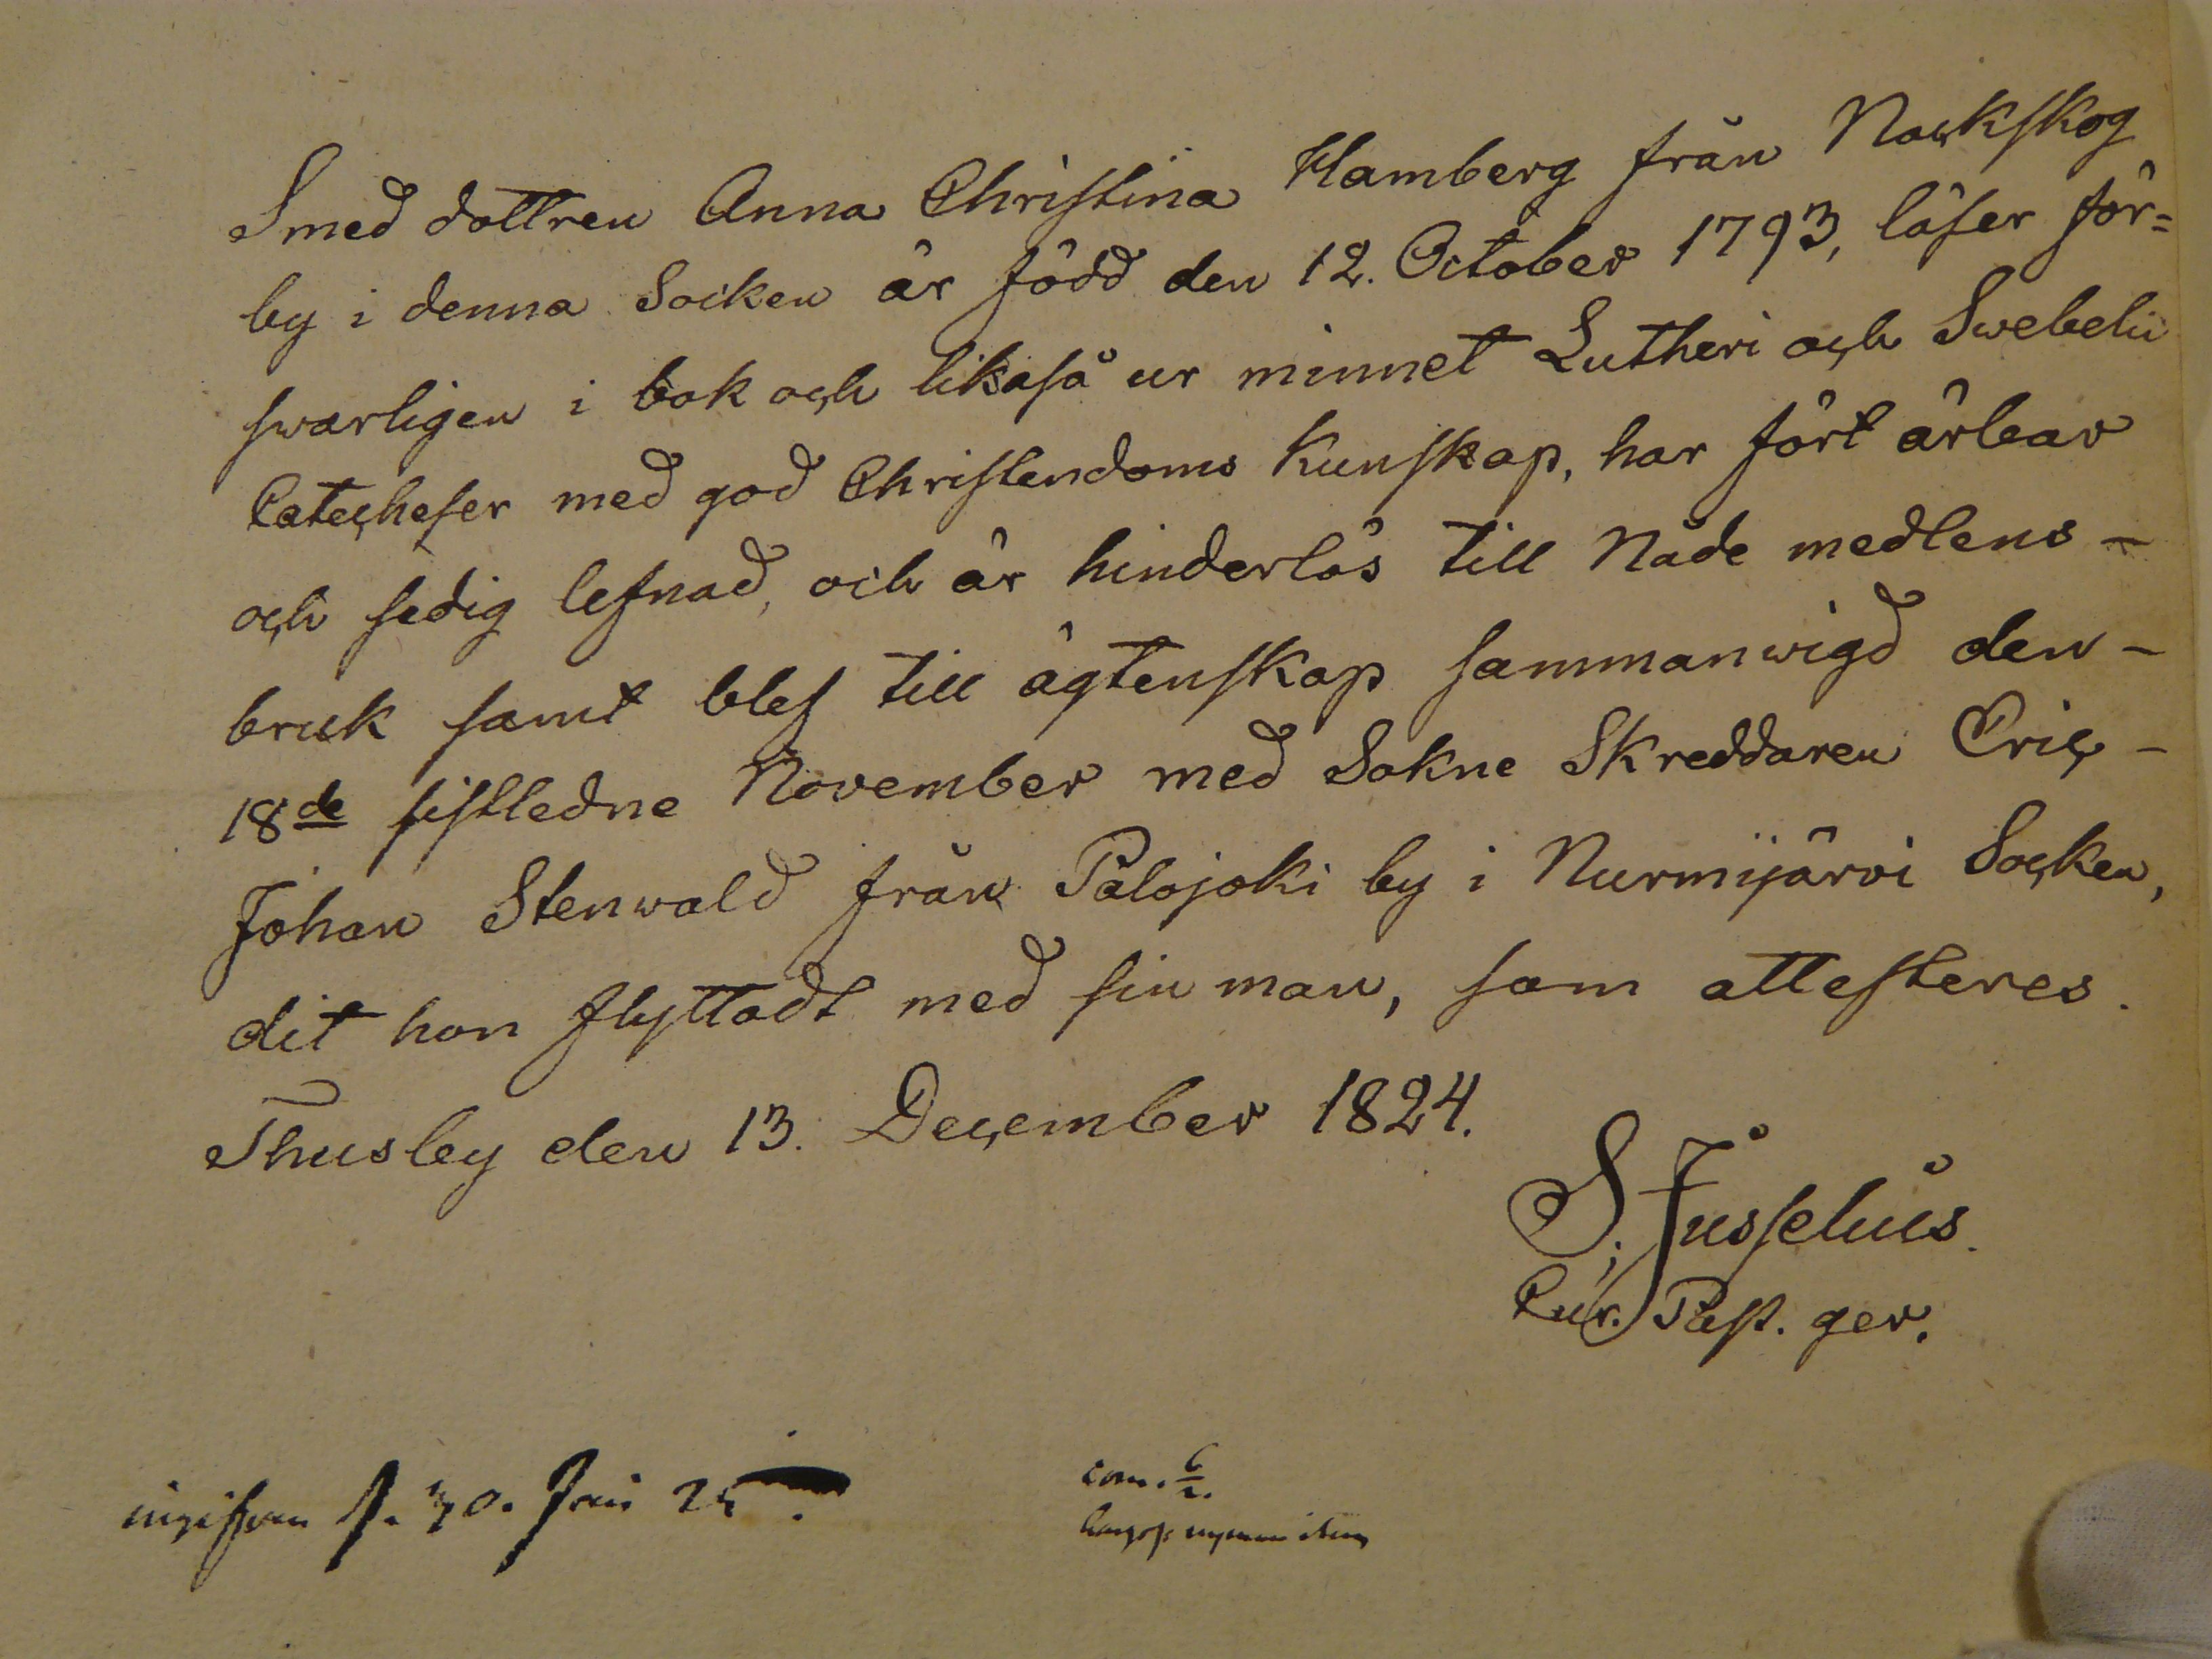 Smed dottren Anna Christina Hamberg från Nackskog
by i denna Socken är född den 12. October 1793, läser för=
swarligen i bok och likaså ur minnet Lutheri och Swebelii
Catecheser med god Christendoms Kunskap, har fört ärbar
och sedig lefnad, och är hinderlös till Nåde medlens -
bruk samt blef till ägtenskap sammanwigd den -
18de sistledne November med Sokne Skreddaren Eric -
Johan Stenwald från Palojoki by i Nurmijärvi Socken,
dit hon flyttadt med sin man, som attesteres.
Thusby den 13. December 1824.
S. Jusselius.
Cur. Past. ger.